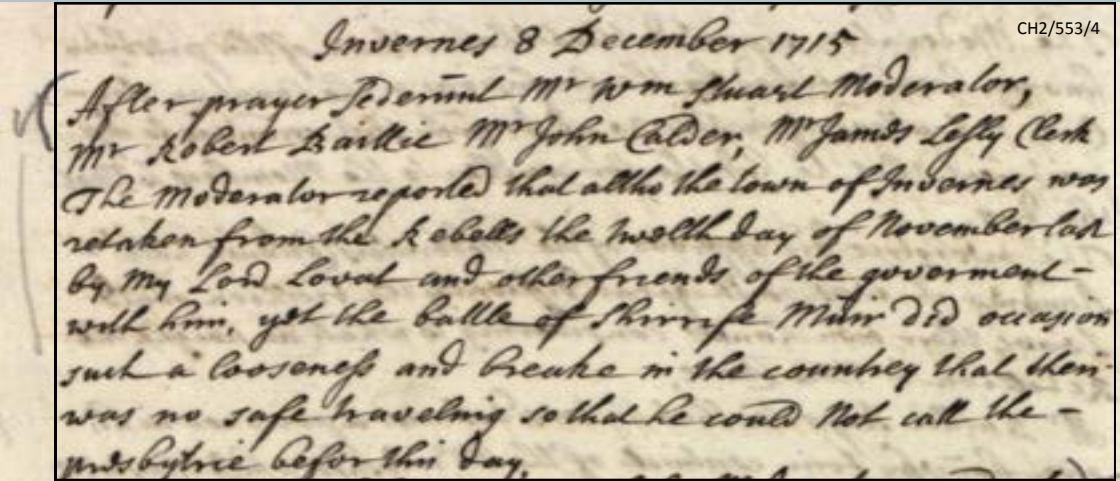 CH2/553/4
Invernes 8 December 1715
After prayer Sederunt Mr Wm Stuart Moderator,
Mr Robert Baillie Mr John Calder, Mr James Lesly Clerk
The Moderator reported that altho the town of Invernes was
retaken from the Rebells the twelth day of November last
by My Lord Lovat and other friends of the goverment -
with him, yet the battle of Shirrife Muir did occasion
such a looseness and breake in the countrey that their
was no safe traveling so that he could Not call the -
presbytrie befor this day.